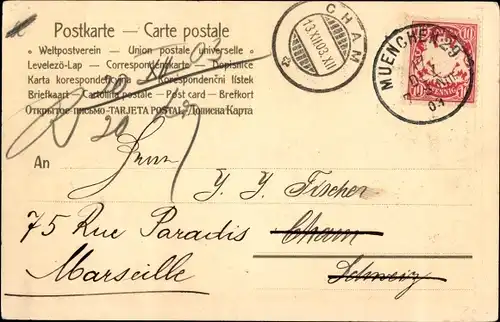 Postkarte — Carte postale
Weltpostverein — Union postale universelle
Levelező-Lap — Correspondenzkarte — Dopisnice
Karta korespondencyjna — Korespondenční lístek
Briefkaart — Cartolina postale — Post card — Brefkort
Открытое письмо — TARJETA POSTAL — Дописна Карта
CHAM
13.XII.03.XII
MUENCHEN 29
03
10 10
10 PFENNIG
An
Herrn
Y. Y. Fischer
75 Rue Paradis
Cham
Marseille
Schweiz